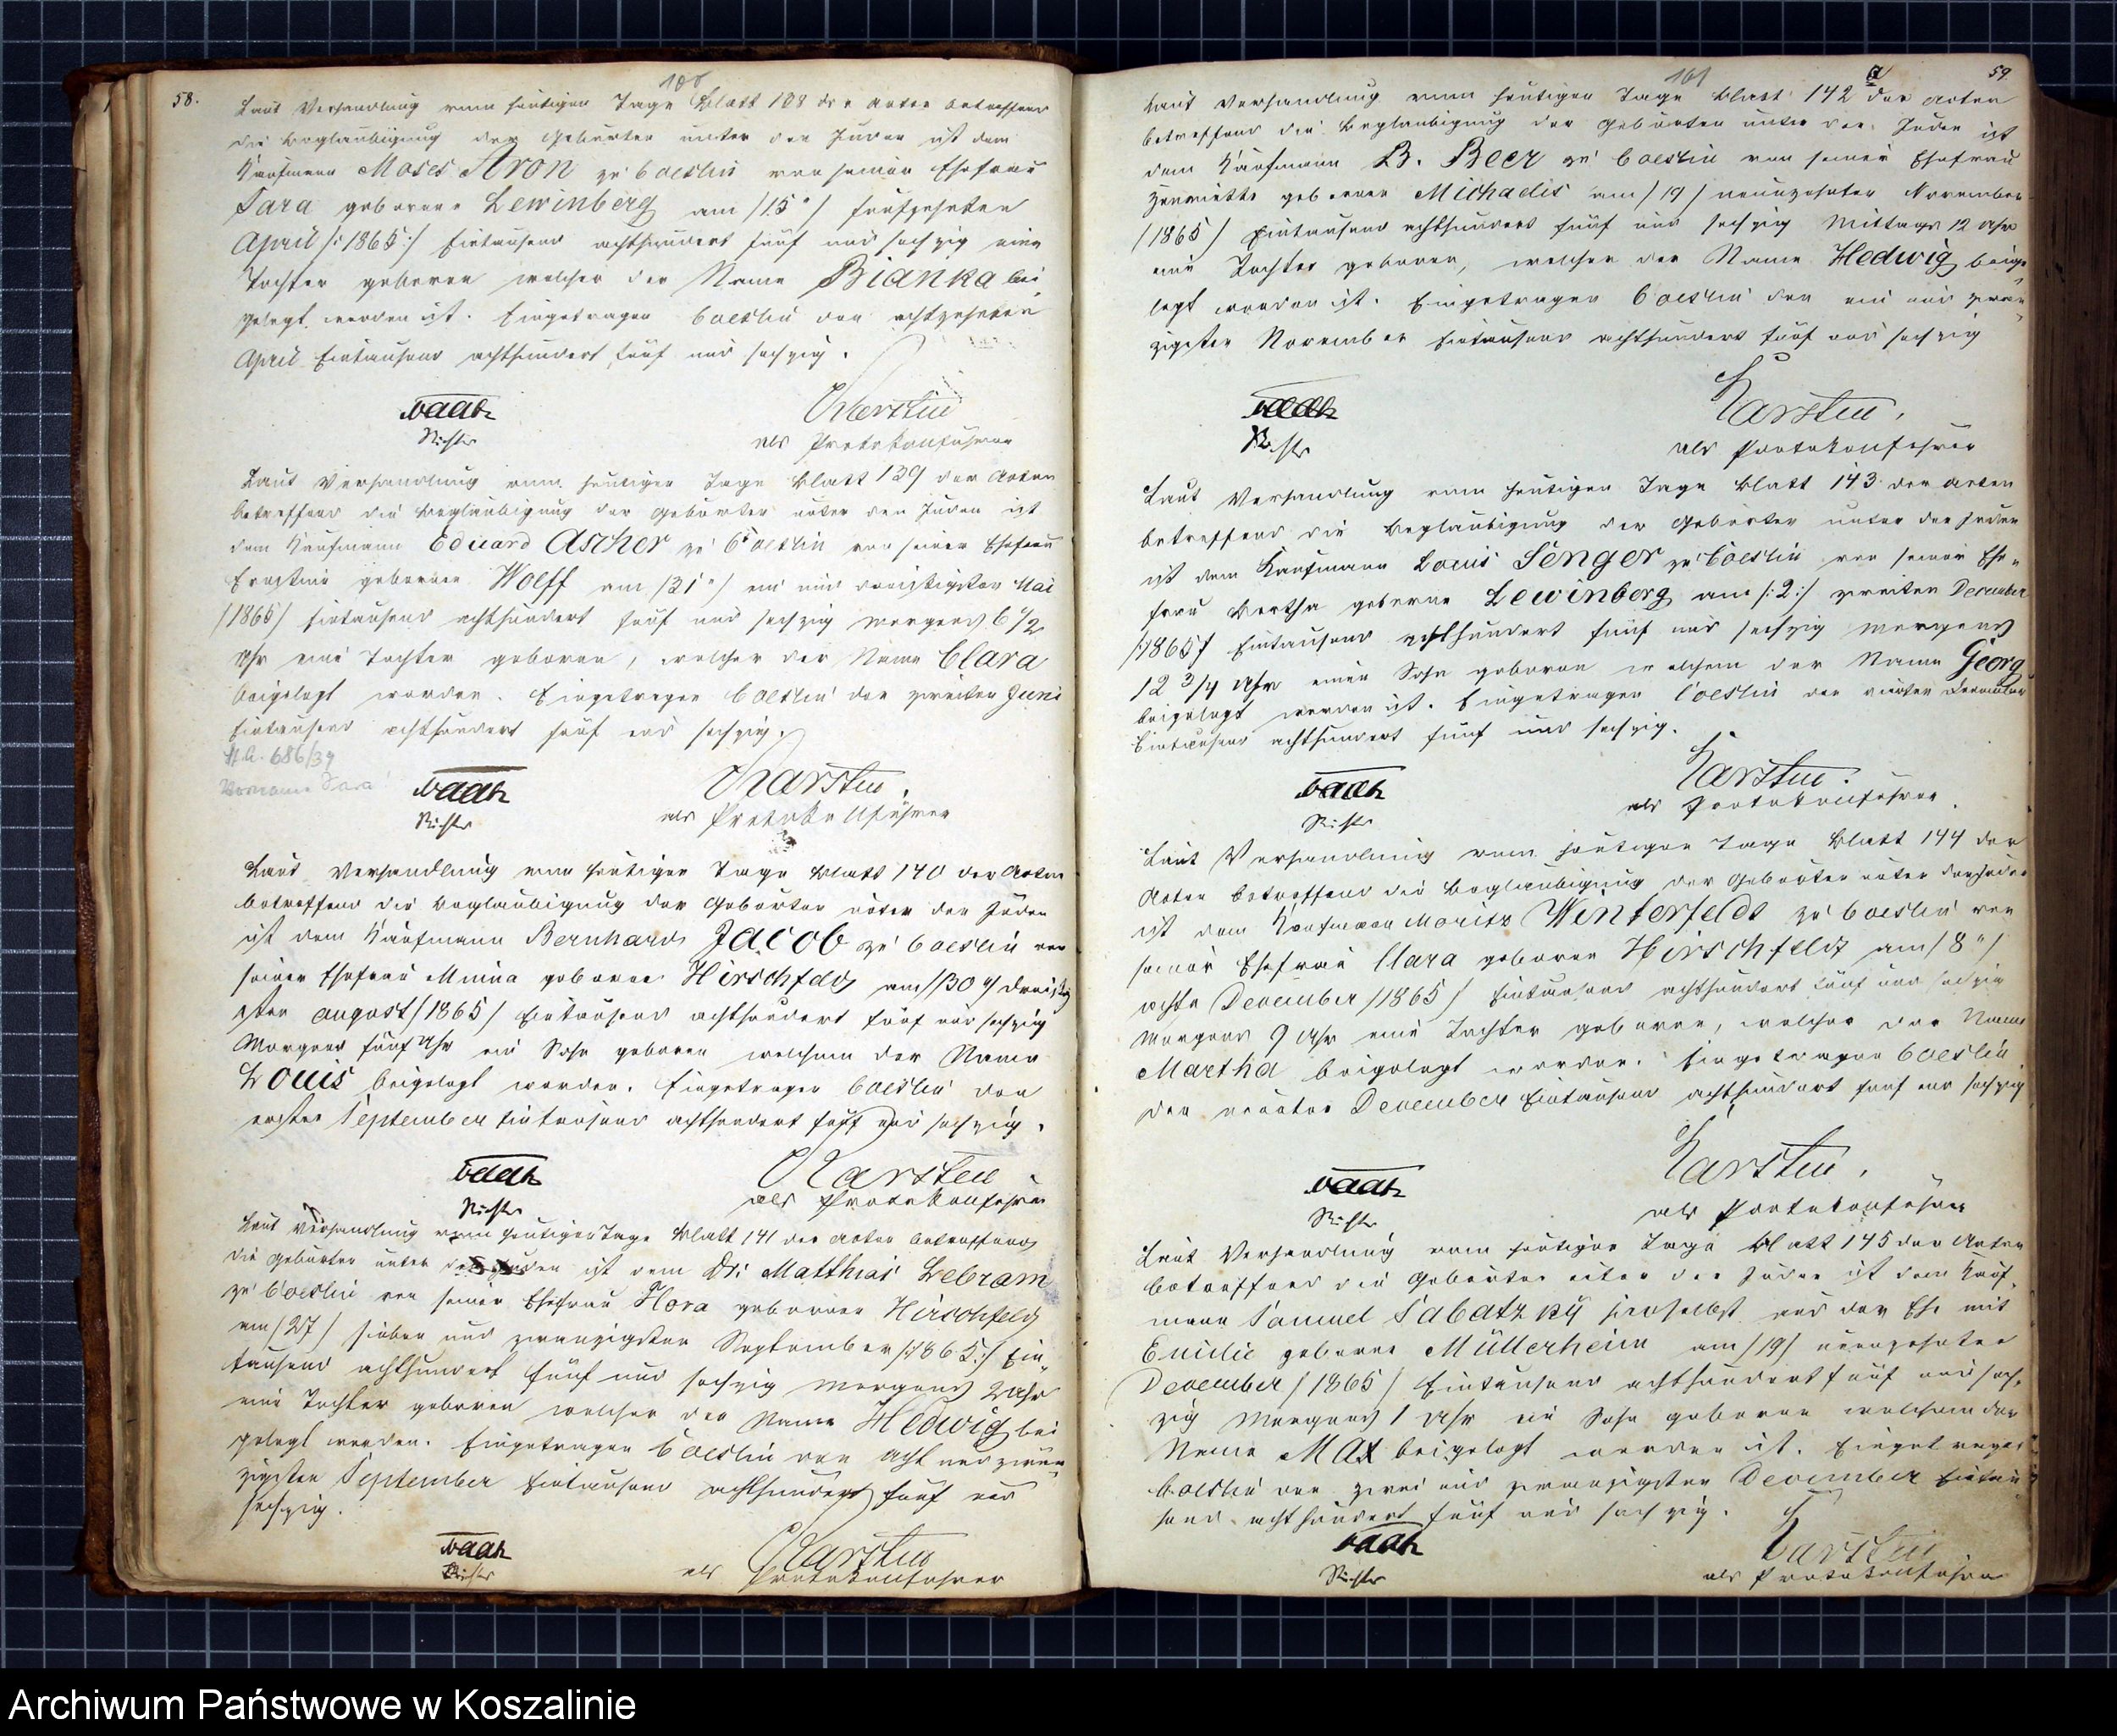 58.
100
Laut Verhandlung vom heutigen Tage Blatt 138 der Acten betreffend
die Beglaubigung der Geburten unter den Juden ist dem
Kaufmann Moses Aron zu Coeslin von seiner Ehefrau
Sara geborene Lewinberg am /15"/ funfzehnten
April /:1865:/ Eintausend achthundert fünf und sechzig eine
Tochter geboren welcher der Name Bianka bei
gelegt worden ist. Eingetragen Coeslin den achtzehnten
April Eintausend achthundert fünf und sechzig.
Richter
Karsten
als Protokollführer
Laut Verhandlung vom heutigen Tage Blatt 139 der Acten
betreffend die Beglaubigung der Geburten unter den Juden ist
dem Kaufmann Eduard Ascher zu Coeslin von seiner Ehefrau
Ernstine geborenen Wolff am /31"/ ein und dreißigsten Mai
/1865/ Eintausend achthundert fünf und sechzig Morgens 6 1/2
Uhr eine Tochter geboren, welcher der Name Clara
beigelegt worden. Eingetragen Coeslin den zweiten Juni
Eintausend achthundert fünf und sechzig.
686/39
Vorname Sara
Richter
Karsten.
als Protokollführer
Laut Verhandlung vom heutigen Tage Blatt 140 der Acten
betreffend die Beglaubigung der Geburten unter den Juden
ist dem Kaufmann Bernhard Jacob zu Coeslin von
seiner Ehefrau Minna geborne Hirschfeld am /30"/ dreißig
sten August /1865/ Eintausend achthundert fünf und sechzig
Morgens fünf Uhr ein Sohn geboren welchem der Name
Louis beigelegt worden. Eingetragen Coeslin den
ersten September Eintausend achthundert fünf und sechzig.
Richter
Karsten
als Protokollführer
Laut Verhandlung vom heutigen Tage Blatt 141 der Acten betreffend
die Geburten unter den Juden ist dem Dr. Matthias Lebram
zu Coeslin von seiner Ehefrau Flora geborner Hirschfeld
am /27/ sieben und zwanzigsten September /:1865:/ Ein-
tausend achthundert fünf und sechzig Morgens 2 Uhr
eine Tochter geboren welcher der Name Hedwig bei
gelegt worden. Eingetragen Coeslin den acht und zwan-
zigsten September Eintausend achthundert fünf und
sechzig.
Richter
Karsten
als Protokollführer
59.
101
a
Laut Verhandlung vom heutigen Tage Blatt 142 der Acten
betreffend die Beglaubigung der Geburten unter den Juden ist
dem Kaufmann B. Beer zu Coeslin von seiner Ehefrau
Henriette geborenen Michaelis am /19/ neunzehnten November
/1865/ Eintausend achthundert fünf und sechzig Mittags 12 Uhr
eine Tochter geboren, welcher der Name Hedwig beige
legt worden ist. Eingetragen Coeslin den ein und zwan-
zigsten November Eintausend achthundert fünf und sechzig
Richter
Karsten.
als Protokollführer
Laut Verhandlung vom heutigen Tage Blatt 143 der Acten
betreffend die Beglaubigung der Geburten unter den Juden
ist dem Kaufmann Louis Senger zu Coeslin von seiner Ehe-
frau Bertha geborne Lewinberg am /:2:/ zweiten December
/1865/ Eintausend achthundert fünf und sechzig Morgens
12 3/4 Uhr einen Sohn geboren welchem der Name Georg
beigelegt worden ist. Eingetragen Coeslin den vierten December
Eintausend achthundert fünf und sechzig.
Richter
Karsten.
als Protokollführer.
Laut Verhandlung vom heutigen Tage Blatt 144 der
Acten betreffend die Beglaubigung der Geburten unter den Juden
ist dem Kaufmann Moritz Winterfeldt zu Coeslin von
seiner Ehefrau Clara geboren Hirschfeld am /8"/
achte December /1865/ Eintausend achthundert fünf und sechzig
Morgens 9 Uhr eine Tochter geboren, welcher der Name
Martha beigelegt worden. Eingetragen Coeslin
den neunten December Eintausend achthundert fünf und sechzig
Richter
Karsten.
als Protokollführer
Laut Verhandlung vom heutigen Tage Blatt 145 der Acten
betreffend die Geburten unter den Juden ist dem Kauf-
mann Samuel Sabatzky hieselbst aus der Ehe mit
Emilie geborne Müllerheim am /19/ neunzehnten
December /1865/ Eintausend achthundert fünf und sech-
zig Morgens 1 Uhr ein Sohn geboren welchem der
Name Max beigelegt worden ist. Eingetragen
Coeslin den zwei und zwanzigsten December Eintau-
send achthundert fünf und sechzig.
Richter
Karsten
als Protokollführer
Archiwum Państwowe w Koszalinie